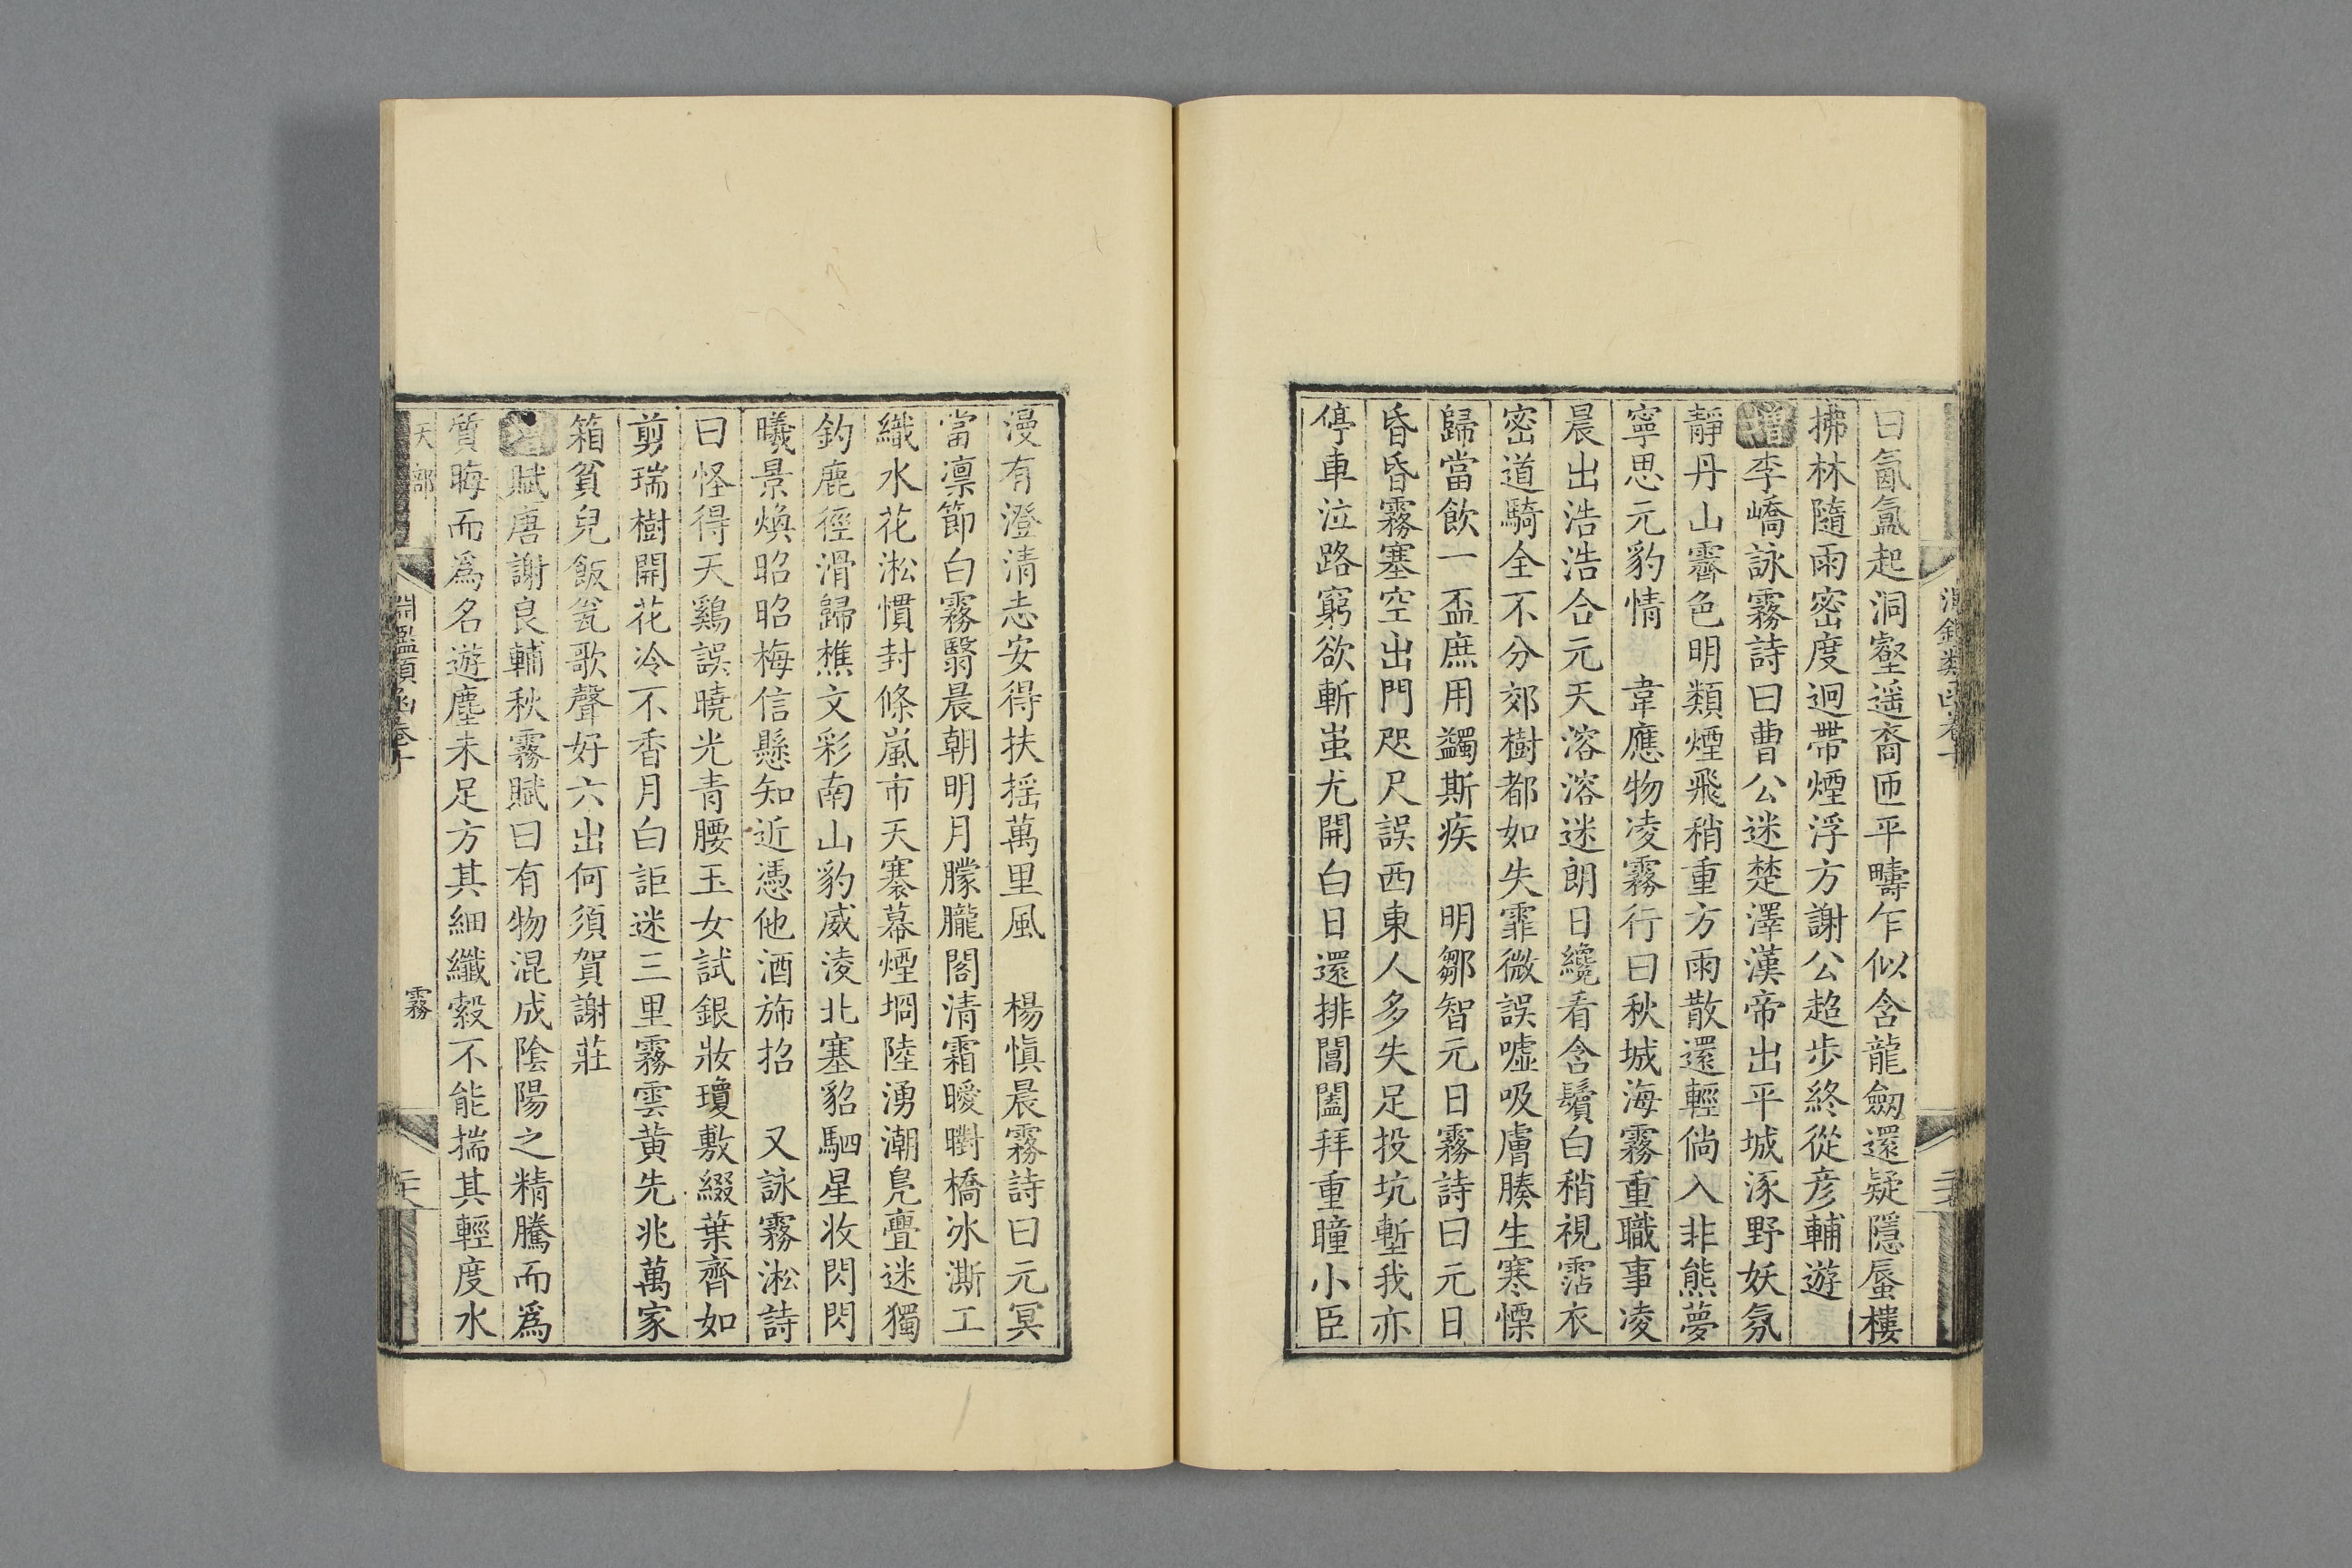 曰氤氳起洞壑遥裔匝平疇乍似含龍劒還疑隱蜃樓
拂林隨雨密度迥帶煙浮方謝公超歩終從彦輔遊
增李嶠詠霧詩曰曹公迷楚澤漢帝出平城涿野妖氛
靜丹山霽色明類煙飛稍重方雨散還輕倘入非熊夢
寧思元豹情　韋應物凌霧行曰秋城海霧重職事凌
晨出浩浩合元天溶溶迷朗日纔看含鬢白稍視霑衣
密道騎全不分郊樹都如失霏微誤噓吸膚腠生寒慄
歸當飲一盃庶用蠲斯疾　明鄒智元日霧詩曰元日
昏昏霧塞空出門咫尺誤西東人多失足投坑塹我亦
停車泣路窮欲斬蚩尤開白日還排閶闔拜重瞳小臣
漫有澄清志安得扶揺萬里風　楊愼晨霧詩曰元冥
當凛節白霧翳晨朝明月朦朧閣清霜曖㬣橋冰澌工
織水花淞慣封條嵐市天褰幕煙坰陸湧潮鳧亹迷獨
釣鹿徑滑歸樵文彩南山豹威淩北塞貂駟星收閃閃
曦景煥昭昭梅信懸知近憑他酒斾招　又詠霧淞詩
曰怪得天鷄誤曉光青腰玉女試銀妝瓊敷綴葉齊如
剪瑞樹開花冷不香月白詎迷三里霧雲黄先兆萬家
箱貧兒飯瓮歌聲好六出何須賀謝莊
增賦唐謝良輔秋霧賦曰有物混成陰陽之精騰而爲
質晦而爲名遊塵未足方其細纖縠不能揣其輕度水
天部
淵鑑類函卷十
霧
二十八